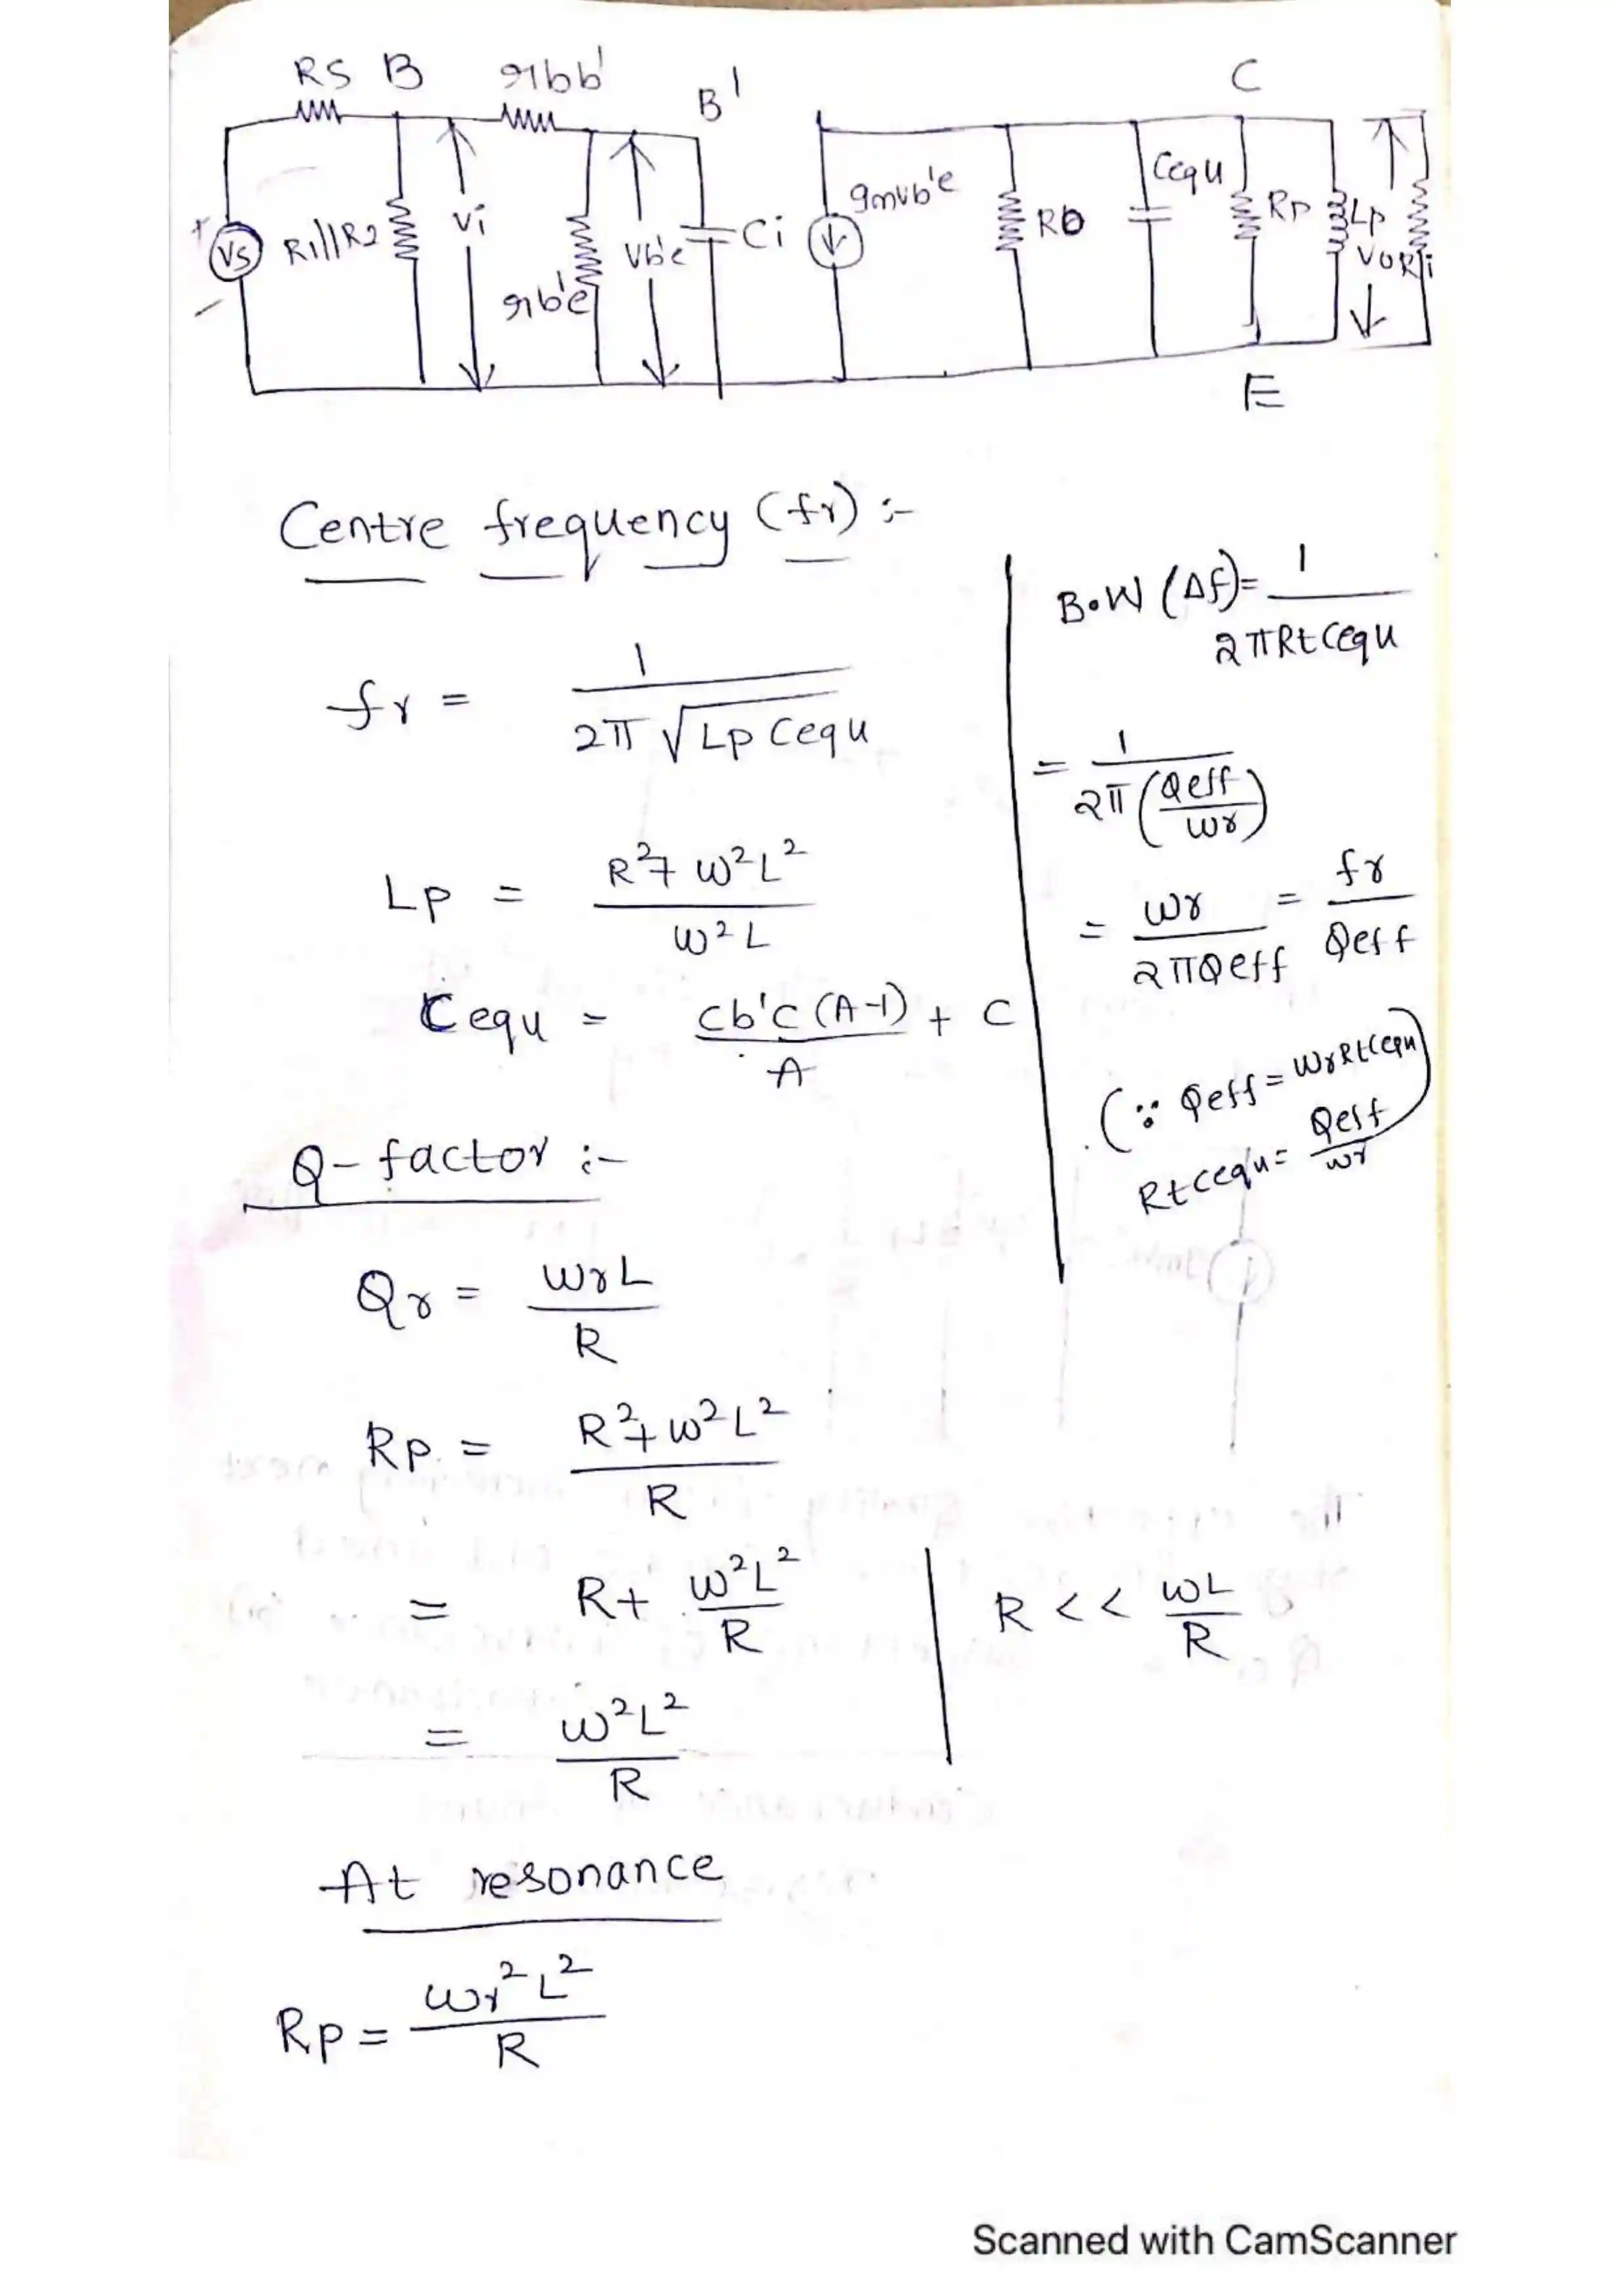 RS B rbb' B' C
Vs R1||R2 Vi rb'e Vb'e Ci gmvb'e Ro Cequ Rp Lp Vo Ri
E
Centre frequency (fr) :-
fr = 1 / 2π √Lp Cequ
Lp = R²+ω²L² / ω²L
Cequ = Cb'c (A-1) / A + C
B.W (Δf) = 1 / 2πRtCequ
= 1 / 2π (Qeff / ωr)
= ωr / 2πQeff = fr / Qeff
(∵ Qeff = ωrRtCequ)
RtCequ = Qeff / ωr
Q-factor :-
Qr = ωrL / R
Rp = R²+ω²L² / R
= R + ω²L² / R
R << ωL / R
= ω²L² / R
At resonance
Rp = ωr²L² / R
Scanned with CamScanner